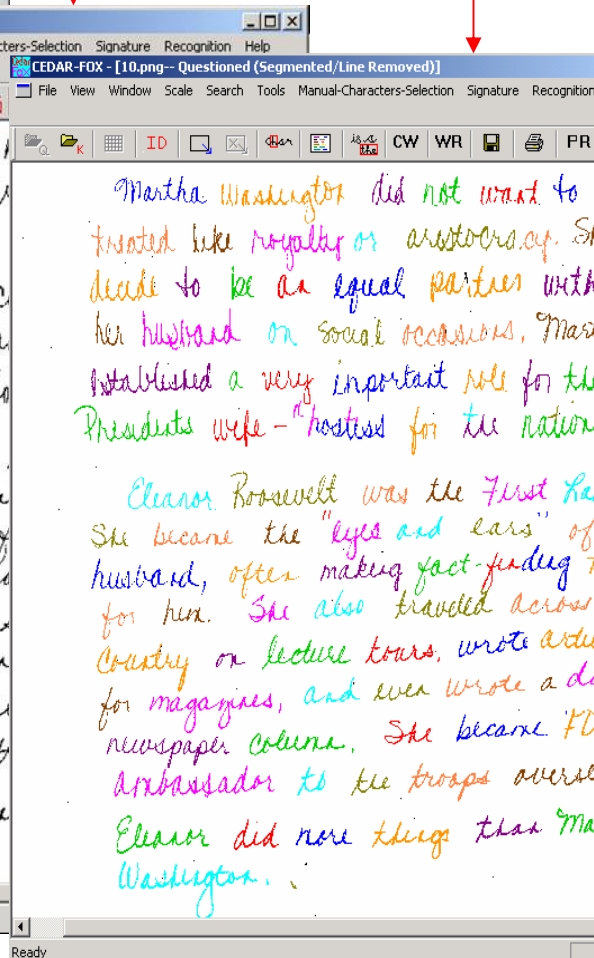 cters-Selection Signature Recognition Help
CEDAR-FOX - [10.png-- Questioned (Segmented/Line Removed)]
File View Window Scale Search Tools Manual-Characters-Selection Signature Recognition
Q K ID Char is.a the CW WR PR
Martha Washington did not want to
treated like royalty or aristocra.cy. Sh
decide to be an equal partner with
her husband on social occasions. Mar
Established a very inportant role for the
Presidents wife - "hostess for the nation
Eleanor Roosevelt was the First La
She became the "eyes and ears" of
husband, often making fact-finding
for him. She also traveled across
Country on lecture tours, wrote artic
for magazines, and even wrote a da
newspaper column. She became FD
ambassador to the troops overse
Eleanor did more things than Ma
Washington.
Ready